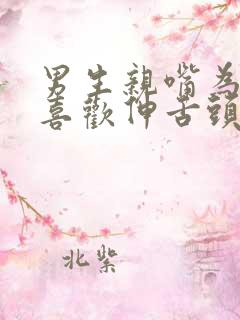 男生親嘴為
喜歡伸舌頭
北紫